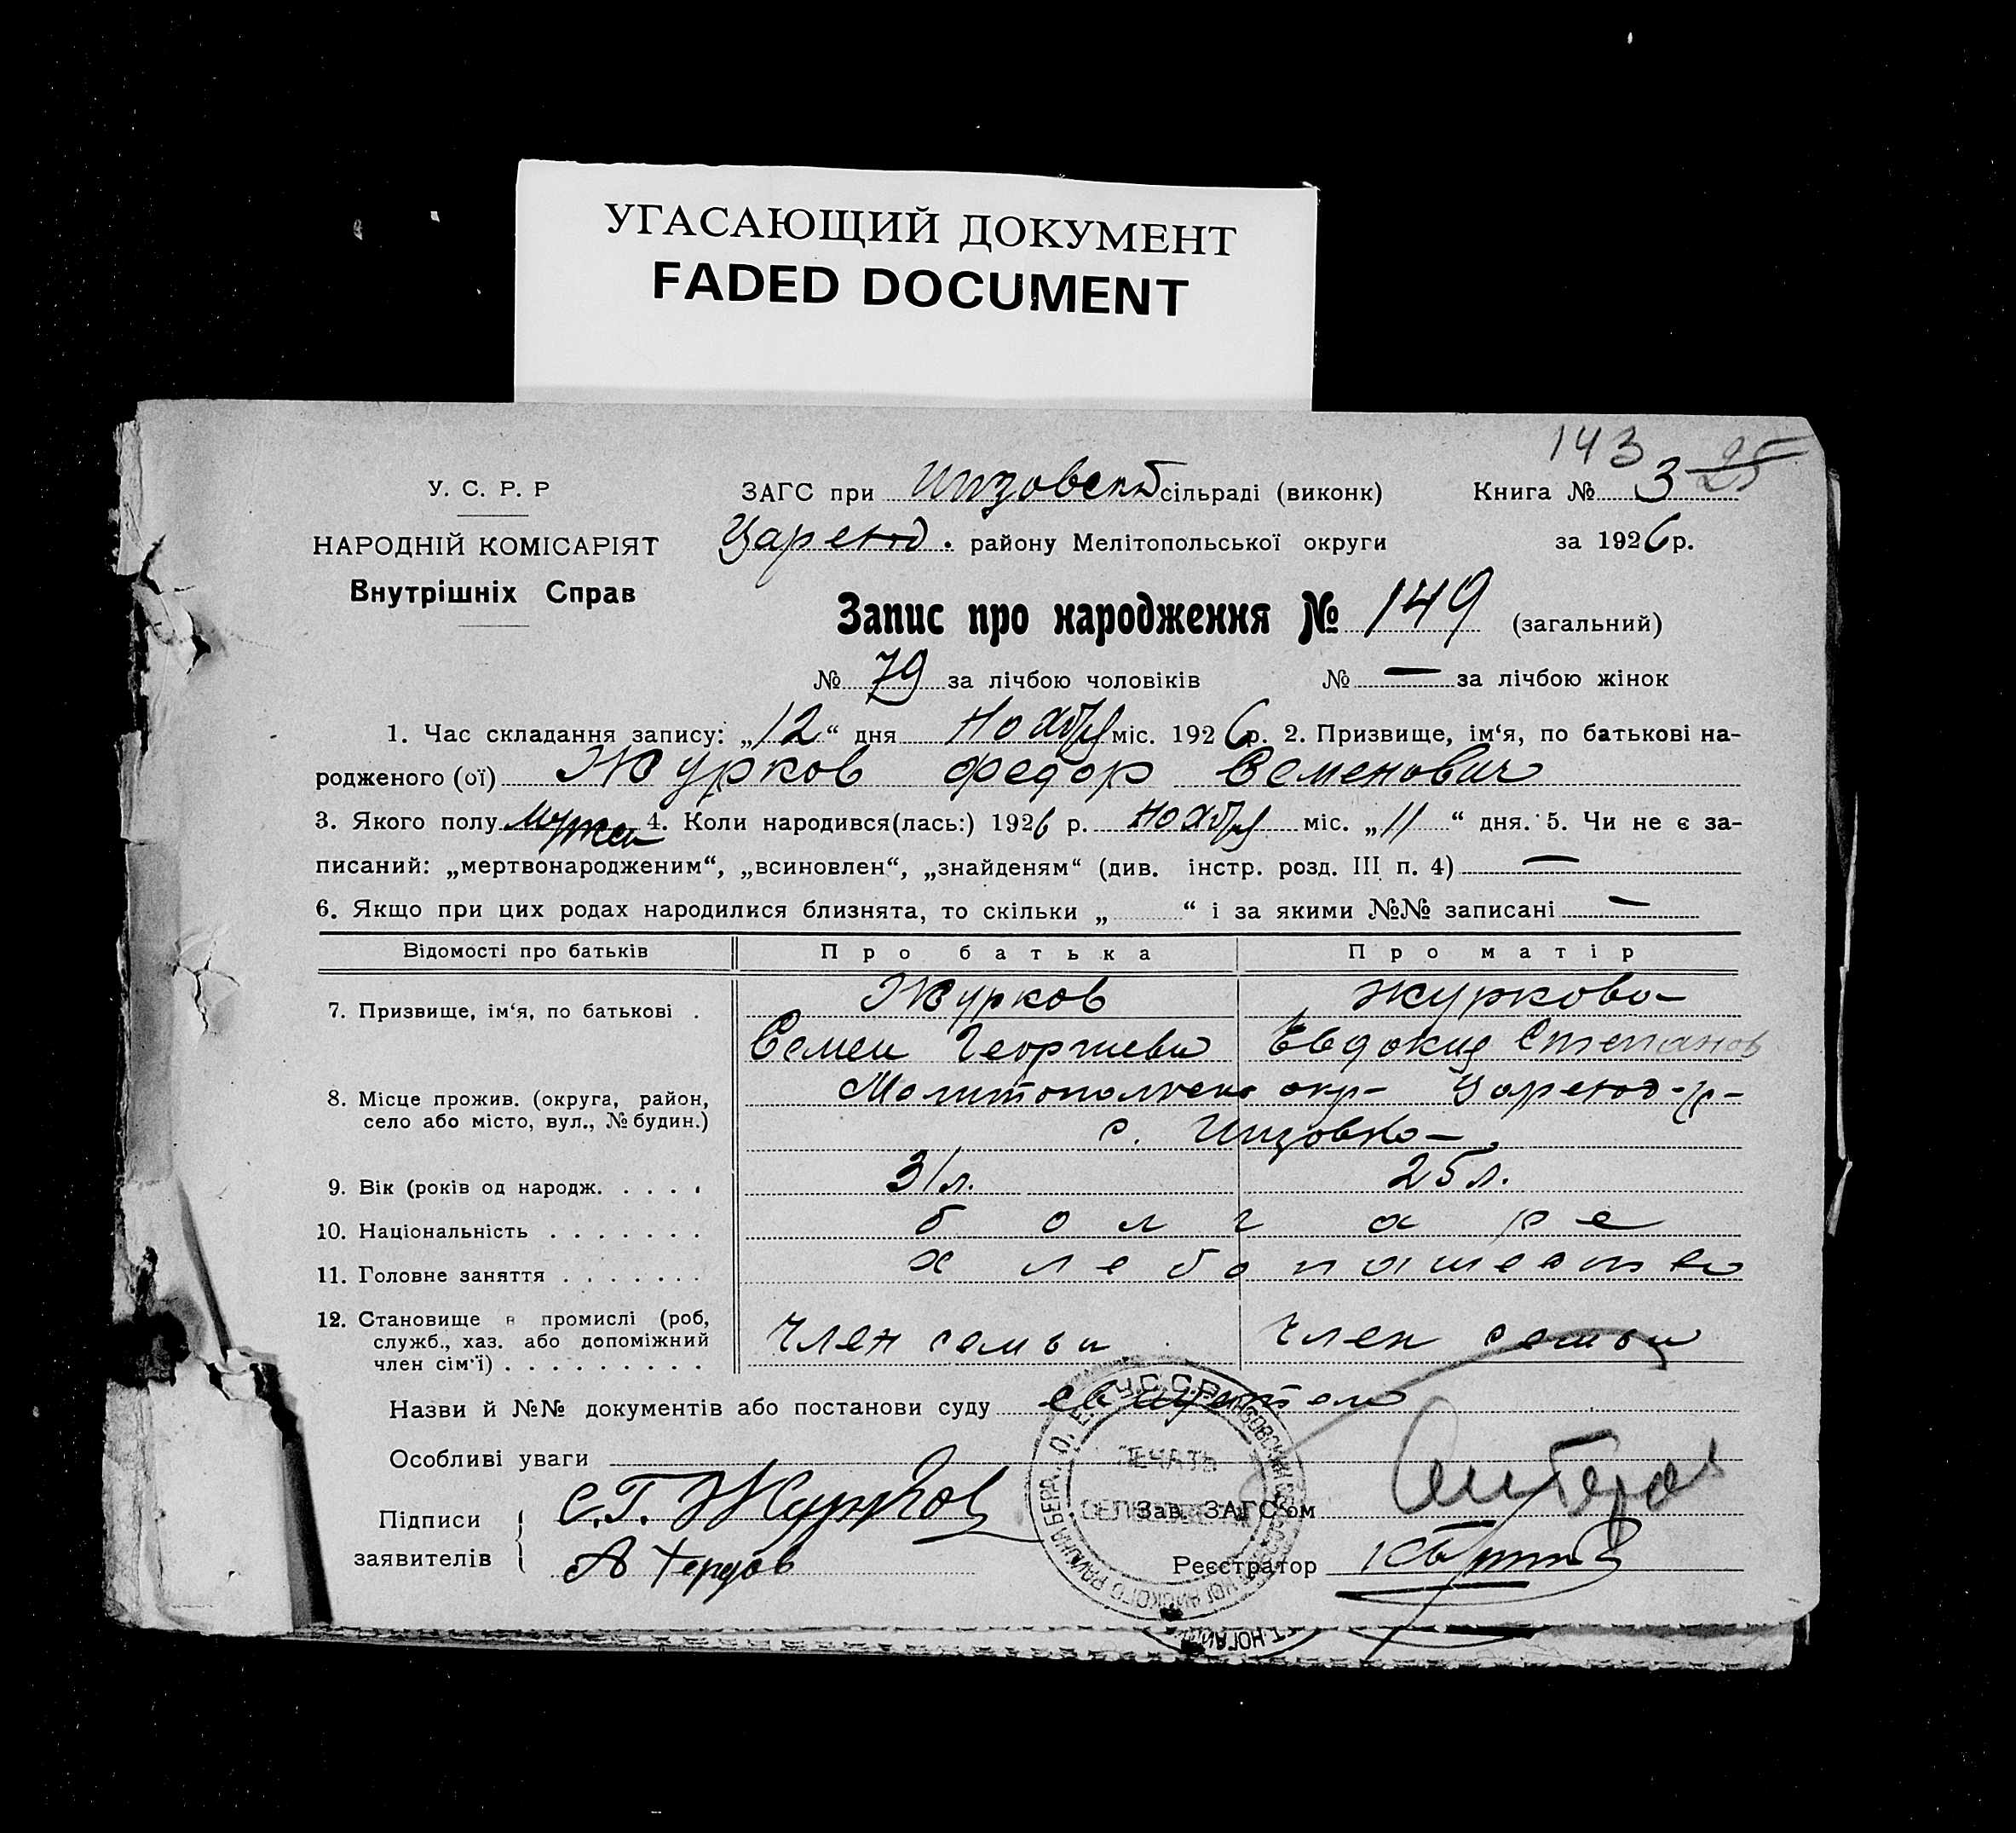 УГАСАЮЩИЙ ДОКУМЕНТ
FADED DOCUMENT
143
25
У. С. Р. Р
НАРОДНІЙ КОМІСАРІЯТ
Внутрішніх Справ
ЗАГС при Инзовськ сільраді (виконк)
Книга № 3
Царекод. району Мелітопольської округи
за 1926 р.
Запис про народження № 149 (загальний)
№ 79 за лічбою чоловіків № — за лічбою жінок
1. Час складання запису: „12“ дня Ноябр міс. 1926 р. 2. Призвище, ім‘я, по батькові на-
родженого (ої) Журков Федор Семенович
3. Якого полу мужск 4. Коли народився(лась:) 1926 р. Ноябр міс. „11“ дня. 5. Чи не є за-
писаний: „мертвонародженим“, „всиновлен“, „знайденям“ (див. інстр. розд. III п. 4) —
6. Якщо при цих родах народилися близнята, то скільки „ “ і за якими №№ записані —
Відомості про батьків Про батька Про матір
7. Призвище, ім‘я, по батькові . Журков Журкова
Семен Георгиеви Евдокия Степанов
8. Місце прожив. (округа, район,
село або місто, вул., № будин.)
Мелитопольска окр- Царекод-р-
с. Инзовка
9. Вік (років од народж. . . . . 31 л. 25 л.
10. Національність . . . . . . . болгаре
11. Головне заняття . . . . . . . хлебопашество
12. Становище в промислі (роб,
служб., хаз. або допоміжний
член сім‘ї) . . . . . . . . .
Член семьи Член семьи
Назви й №№ документів або постанови суду
Особливі уваги
Підписи
заявителів
С. Г. Журков
Зав. ЗАГС‘ом
Реєстратор
У.С.С.Р.
ПЕЧАТЬ